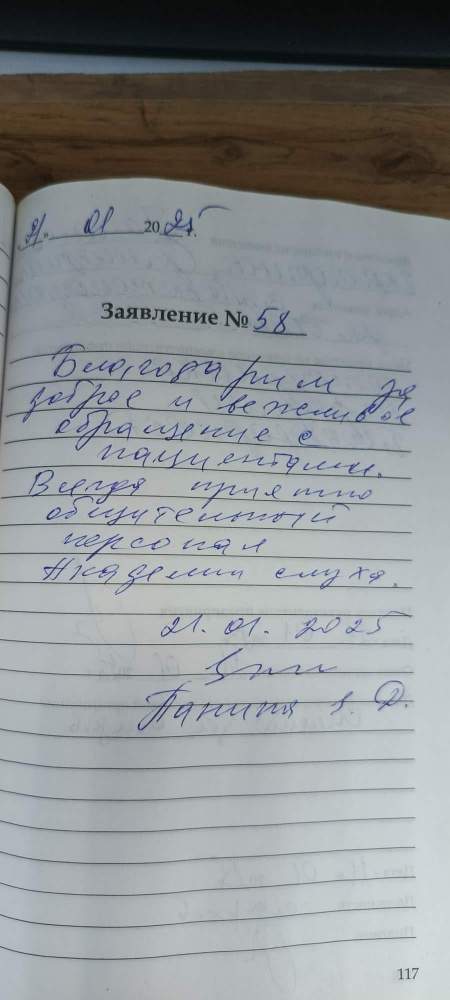 21. 01 2025г.
Заявление № 58
Благодарим за
доброе и вежливое
обращение с
пациентами.
Всегда приятно
общительный
персонал
Академии слуха.
21.01.2025
Панина Д.
117